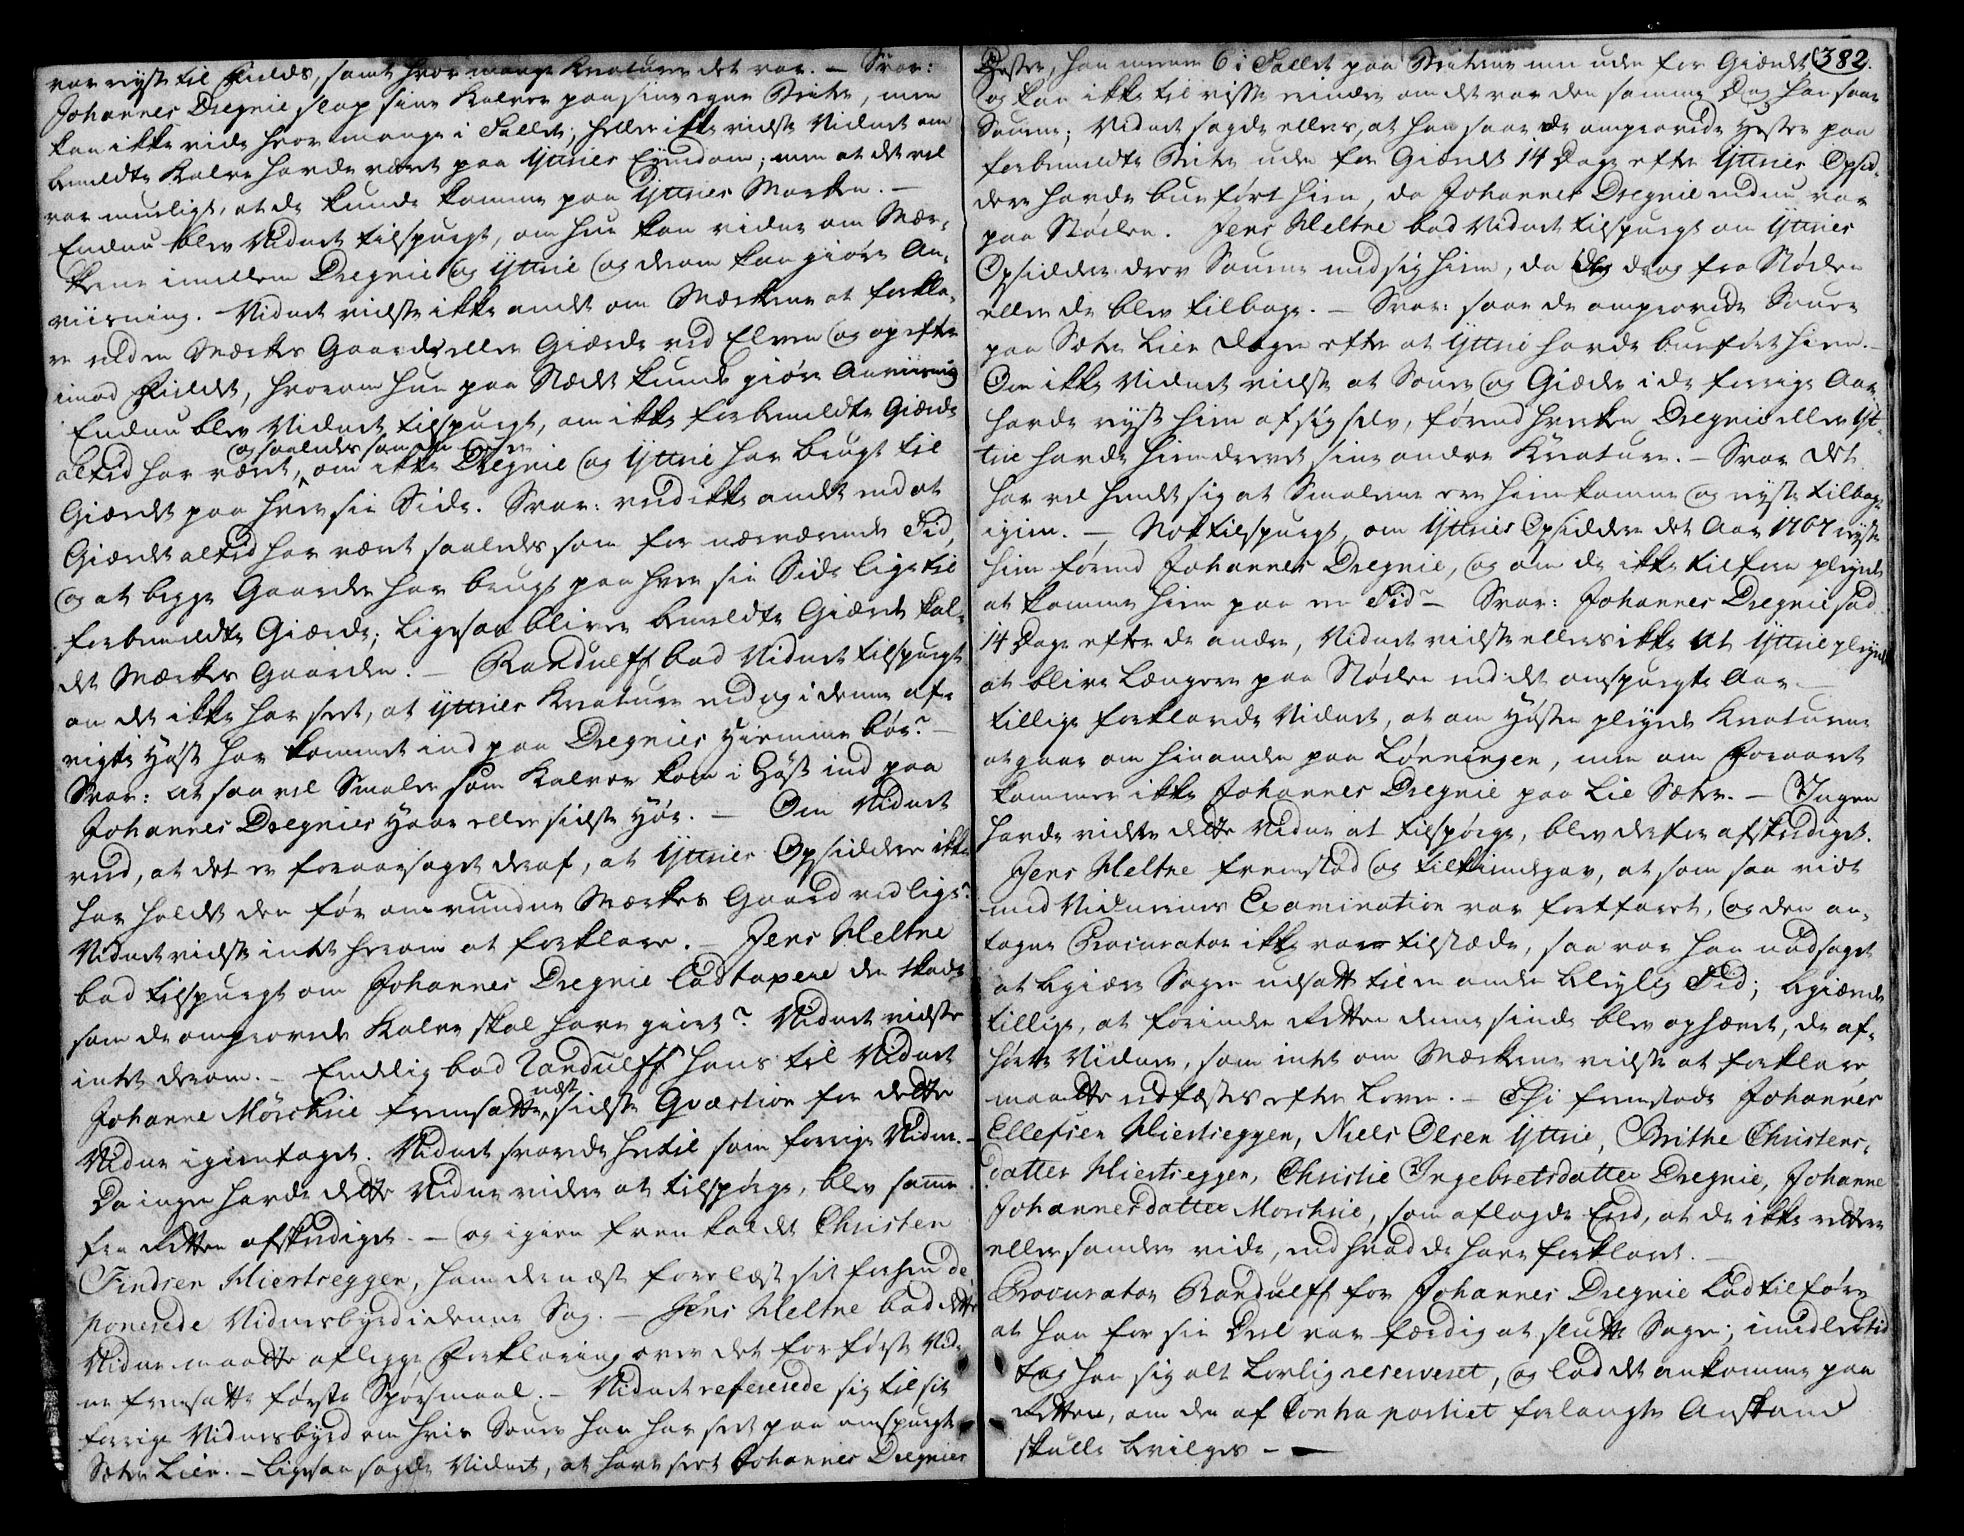 var reyst til Fields, samt hvor mange Kreature det var. – Svar:
Johannes Dregnie slap sine Kalver paa sine egne Støhle, men
kan ikke vide hvor mange i Tallet; heller ikke vidste Vidnet om
bemeldte Kalve havde været paa Yttries Eyendom; men at det vel
var mueligt, at de kunde komme paa Yttries Marken. –
Endnu blev Vidnet tilspurgt, om hun kan vidne om Mær-
kerne imellem Dregnie og Yttrie og derom kan giøre An-
viisning. – Vidnet vidste ikke andet om Mærkerne at forkla-
re end en Mærkes Gaard eller Giærde ved Elven og op efter
imod Fieldet, hvorom hun paa Stedet kunde giøre Anviisning
Endnu blev Vidnet tilspurgt, om ikke forbemeldte Giærde
og saaledes som
altid har været, om ikke Dregnie og Yttrie har brugt til
Giærdet paa hver sin Side. Svar: ved ikke andet end at
Giærdet altid har været saaledes som for nærværende Tid,
og at begge Gaarder har brugt paa hver sin Side lige til
forbemeldte Giærde; ligesaa bliver bemeldte Giærde kal-
det Mærkes Gaarden. – Randulff bad Vidnet tilspurgt
om det ikke har seet, at Yttries Kreature endog i denne afv-
vigte Høst har kommet ind paa Dregnies Hiemme bøe? –
Svar: at saavel Smaler som Kalver kom i Høst ind paa
Johannes Dregnies Haae eller sidste Høe. – Om Vidnet
veed, at det er foraarsaget deraf, at Yttries Opsiddere ikke
har holdt den før omvundne Mærkes Gaard ved lige?
Vidnet vidste intet herom at forklare. – Jens Meltne
bad tilspurgt om Johannes Dregnie lod taxere den skade
som de omprovede Kalve skal have giort? Vidnet vidste
intet derom. – Endelig bad Randulff hans til Vidnet
næst
Johanne Mørchrie fremsatte sidste Qvæstion for dette
Vidne igientaget. Vidnet svarede hertil som forrige Vidne. –
Da ingen havde dette Vidne videre at tilspørge, blev samme
fra Retten afskediget. – og igien fremkaldet Christen
Findsen Miertseggen, ham dernæst forelæst sit forhen de-
ponerede Vidnesbyrd i denne Sag. – Jens Meltne bad dette
Vidne maatte aflegge Forklaring over det for første Vid-
ne fremsatte første Spørsmaal. – Vidnet refererede sig til sit
forrige Vidnesbyrd om hvis Souer han har seet paa omspurgte
Sæter Lien. – ligesaa sagde Vidnet, at have seet Johannes Dregnies
382.
Hester, han mener 6 i Tallet paa Støhlene men uden for Giærdet
og kan ikke til visse erindre om det var den samme Dag han saae
Souene; Vidnet sagde ellers, at han saae de omprovede Hester paa
forbemeldte Støhle uden for Giærdet 14 Dage efter Yttries Opsid-
dere havde buefört hiem, da Johannes Dregnie endnu var
paa Stølen. Jens Meltne bad Vidnet tilspurgt om Yttries
Opsiddere drev Souene med sig hiem, da de drog fra Stølen
eller de blev tilbage. – Svar: saae de omprovede Souer
paa Sæter Lien Dagen efter at Yttrie havde buefört hiem. –
Om ikke Vidnet vidste at Souer og Gieder i de forrige Aar
havde reyst hiem af sig selv, førend hverken Dregnie eller Yt-
trie havde hiemdrevet sine andre Kreature. – Svar det
har vel hendet sig at Smalene ere hiemkomne og reyste tilbage
igien. – Nok tilspurgt, om Yttries Opsiddere det Aar 1767 reyste
hiem førend Johannes Dregnie, og om de ikke tilforn pleyede
at komme hiem paa en Tid? – Svar: Johannes Dregnie sad
14 Dage efter de andre, Vidnet vidste ellers ikke at Yttrie pleyede
at blive længere paa Stølen end det omspurgte Aar –
tillige forklarede Vidnet, at om Høsten pleyede Kreaturene
at gaae om hinanden paa Lønningen, men om Foraaret
kommer ikke Johannes Dregnie paa Lie Sæter. – Ingen
havde videre dette Vidne at tilspørge, blev derfor afskediget.
Jens Meltne fremstod og tilkiendegav, at som saa vidt
med Vidnernes Examination var fortfaret, og den an-
tagne Procurator ikke var tilstæde, saa var han nødsaget
at begiære Sagen udsatt til en anden beleylig Tid; begiærede
tillige, at forinden Retten denne sinde blev ophævet, de af-
hørte Vidner, som intet om Mærkerne vidste at forklare,
maatte edfæstes efter Loven. – Thi fremstode Johannes
Ellefsen Miertseggen, Niels Olsen Yttrie, Brithe Christens-
datter Miertseggen, Christie Ingebretsdatter Dregnie, Johanne
Johannesdatter Morchrie, som aflagde Eed, at de ikke rettere
eller sandere vide, end hvad de have forklaret. –
Procurator Randulff for Johannes Dregnie lod tilføre
at han for sin Deel var færdig at slutte Sagen; imidlertid
tog han sig alt Lovlig reserveret, og lod det ankomme paa
Retten, om den af Contra partiet forlangte Anstand
skulle bevilges – –